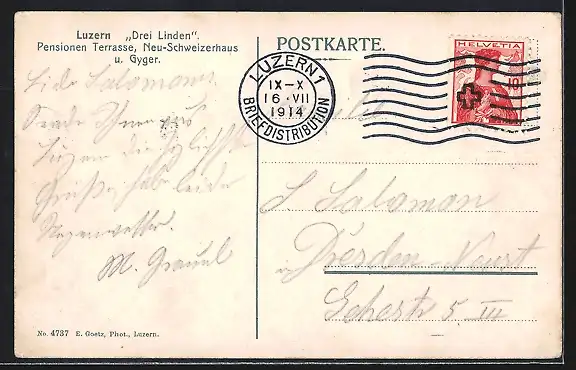 Luzern „Drei Linden“.
Pensionen Terrasse, Neu-Schweizerhaus
u. Gyger.
POSTKARTE.
LUZERN 1
IX–X
16·VII
1914
BRIEFDISTRIBUTION
HELVETIA
10
Salomann
Sende Ihnen aus
Luzern die
Grüße, habe leider
Regenwetter.
M.
S Salomon
Dresden-Neust
5 III
No. 4737 E. Goetz, Phot., Luzern.